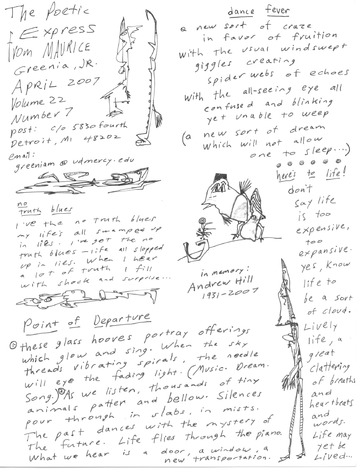 The Poetic
Express
from MAURICE
Greenia, JR.
APRIL 2007
Volume 22
Number 7
post: c/o 5830 fourth
Detroit, MI 48202
email:
greeniam@udmercy.edu
no
truth blues
I've the no truth blues
my life's all swamped up
in lies. I've got the no
truth blues—life all slopped
up in lies. When I hear
a lot of truth I fill
with shock and surprise...
dance fever
a new sort of craze
in favor of fruition
with the usual windswept
giggles creating
spider webs of echoes
with the all-seeing eye all
confused and blinking
yet unable to weep
(a new sort of dream
which will not allow
one to sleep...)
here's to life!
don't
say life
is too
expensive,
too
expansive.
yes, know
life to
be a sort
of cloud.
Lively
life, a
great
clattering
of breaths
and
heartbeats
and
words.
Life may
yet be
Lived...
in memory:
Andrew Hill
1931-2007
Point of Departure
these glass hooves portray offerings
which glow and sing. When the sky
threads vibrating spirals, the needle
will eye the fading light. (Music. Dream.
Song.) As we listen, thousands of tiny
animals patter and bellow. Silences
pour through in slabs, in mists.
The past dances with the mystery of
The future. Life flies through the piano
What we hear is a door, a window, a
new transportation.